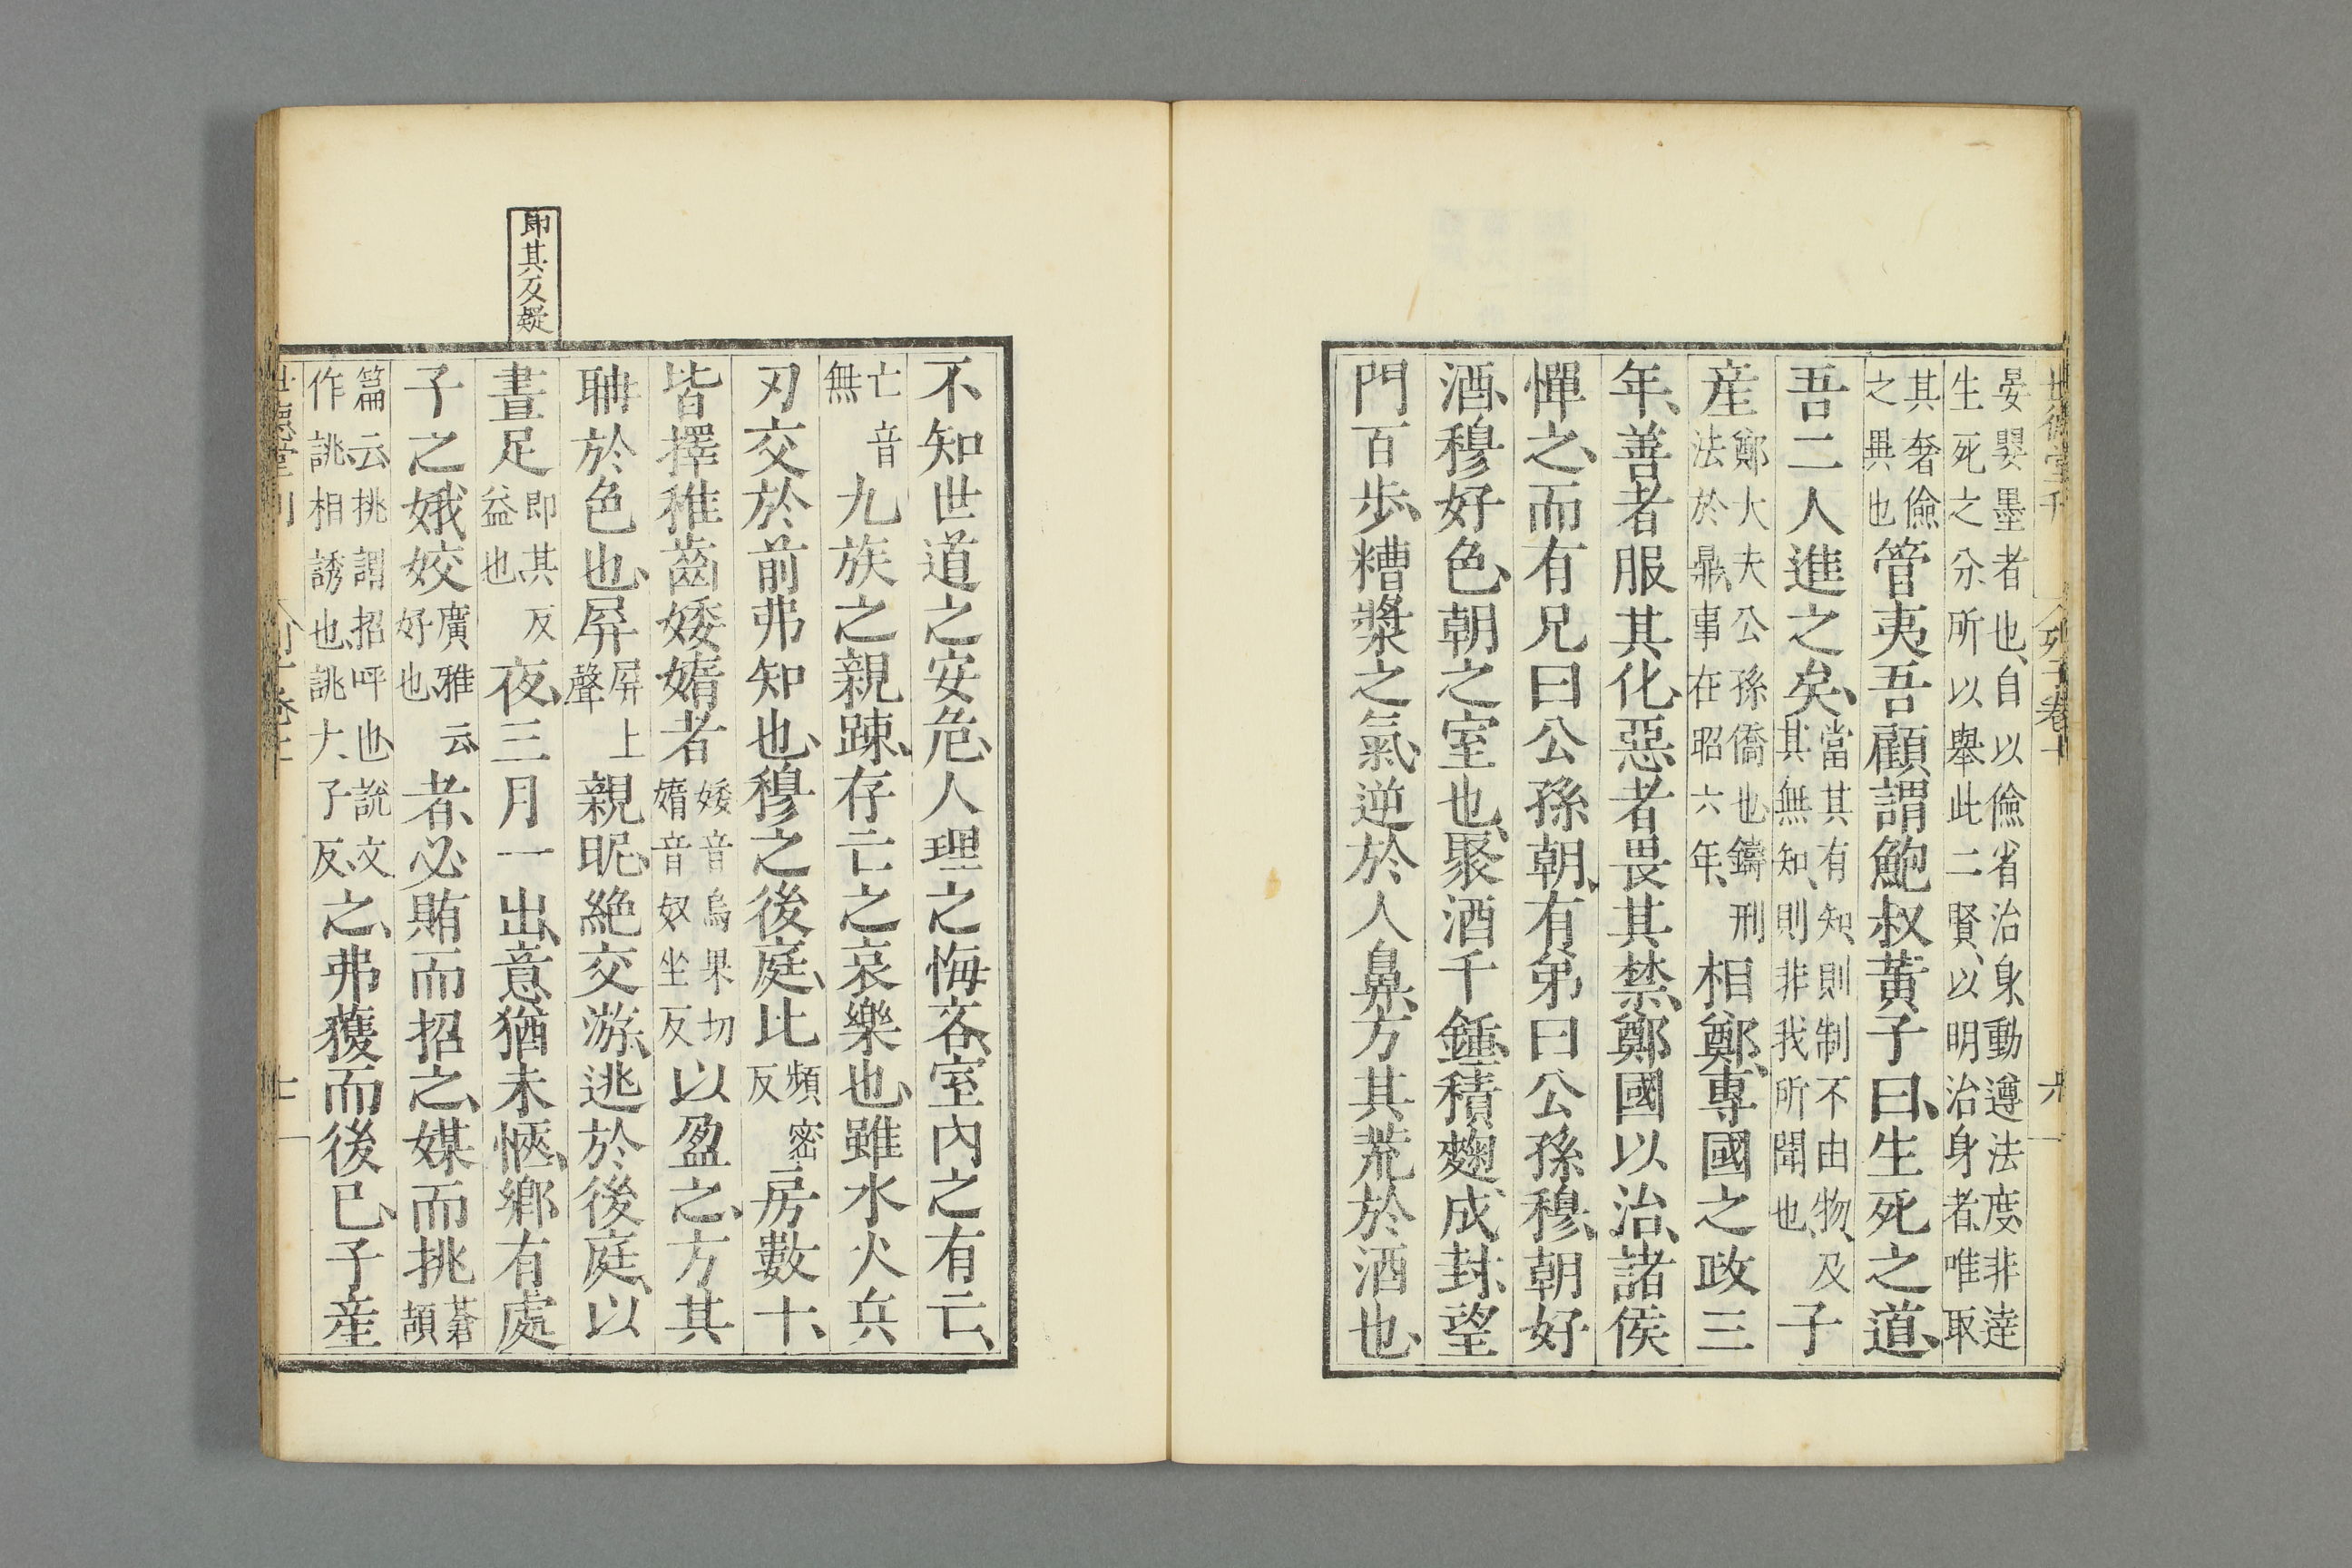 晏嬰墨者也、自以儉省治身、動遵法度、非達
生死之分、所以舉此二賢、以明治身者、唯取
其奢儉
之異也
管夷吾顧謂鮑叔黃子曰、生死之道、
吾二人進之矣、
當其有知、則制不由物、及
其無知、則非我所聞也、
子
産
鄭大夫公孫僑也、鑄刑
法於鼎、事在昭六年、
相鄭、專國之政三
年、善者服其化、惡者畏其禁、鄭國以治、諸侯
憚之、而有兄曰公孫朝、有弟曰公孫穆、朝好
酒、穆好色、朝之室也、聚酒千鍾、積麴成封、望
門百歩、糟漿之氣、逆於人鼻、方其荒於酒也、
不知世道之安危、人理之悔吝、室內之有亡、
亡音
無
九族之親踈、存亡之哀樂也、雖水火兵
刃交於前弗知也、穆之後庭、比
頻密
反
房數十、
皆擇稚齒婑媠者
婑音烏果切
媠音奴坐反
以盈之、方其
聃於色也、屏
屏上
聲
親昵、絶交游、逃於後庭、以
晝足
即其反
益也、
夜、三月一出、意猶未愜、鄉有處
子之娥姣
廣雅云
好也、
者、必賄而招之、媒而挑
蒼頡
篇云挑謂招呼也、說文
作誂、相誘也、誂大、子反、
之、弗獲而後已、子産
即其反疑
世德堂刊
列子卷十
世德堂刊